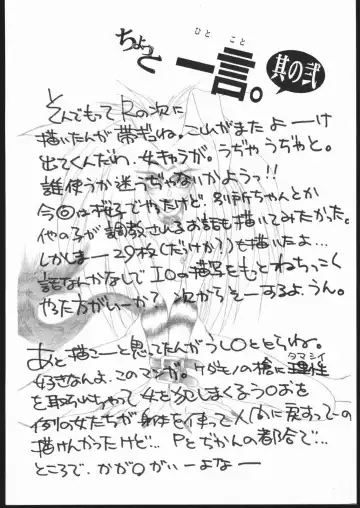 ちょっと一言。
ひとこと
其の弐
そんでもってRの次に
描いたんが帯ギュね。こいつがまたよーけ
出てくんだわ、女キャラが。うぢゃうぢゃと。
誰使うか迷うぢゃないかようっ!!
今回は桜子でやったけど、別所ちゃんとか
他の子が調教されるお話も描いてみたかった。
しかしまー29枚(だけか?)も描いたよ…
話なんかなしでIOの描写をもとねちっこく
やった方がいーか?次からそーするよ、うん。
あと描こーと思ってたんがうしOととらね。
好きなんよ、このマンガ。ケダモノの槍に理性
タマシイ
を取られちゃって女を犯しまくるうOおを
例の女たちが身体を使って人間に戻すってーの
描けんかったけど…Pとぢかんの都合で…
ところで、かがOがいーよなー